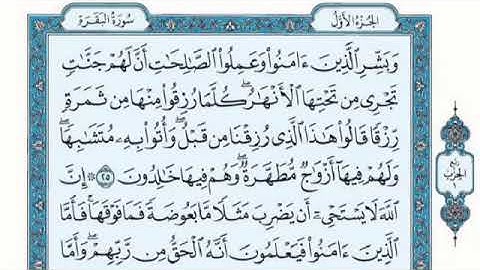 سُورَةُ البَقَرَةِ
الجُزْءُ الأَوَّلُ
وَبَشِّرِ الَّذِينَ ءَامَنُوا۟ وَعَمِلُوا۟ الصَّٰلِحَٰتِ أَنَّ لَهُمْ جَنَّٰتٍ
تَجْرِى مِن تَحْتِهَا الْأَنْهَٰرُ ۖ كُلَّمَا رُزِقُوا۟ مِنْهَا مِن ثَمَرَةٍ
رِّزْقًا قَالُوا۟ هَٰذَا الَّذِى رُزِقْنَا مِن قَبْلُ ۖ وَأُتُوا۟ بِهِۦ مُتَشَٰبِهًا ۖ
وَلَهُمْ فِيهَآ أَزْوَٰجٌ مُّطَهَّرَةٌ ۖ وَهُمْ فِيهَا خَٰلِدُونَ ٢٥ ۞ إِنَّ
اللَّهَ لَا يَسْتَحْىِۦٓ أَن يَضْرِبَ مَثَلًا مَّا بَعُوضَةً فَمَا فَوْقَهَا ۚ فَأَمَّا
الَّذِينَ ءَامَنُوا۟ فَيَعْلَمُونَ أَنَّهُ الْحَقُّ مِن رَّبِّهِمْ ۖ وَأَمَّا
ربع
الحزب
١